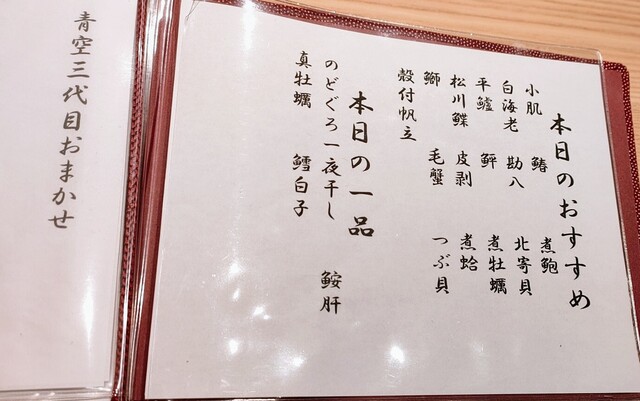 本日のおすすめ
小肌 鰆 煮鮑
白海老 勘八 北寄貝
平鱸 鮃 煮牡蠣
松川鰈 皮剥 煮蛤
鰤 毛蟹 つぶ貝
殻付帆立
本日の一品
のどぐろ一夜干し 鮟肝
真牡蠣 鱈白子
青空三代目おまかせ